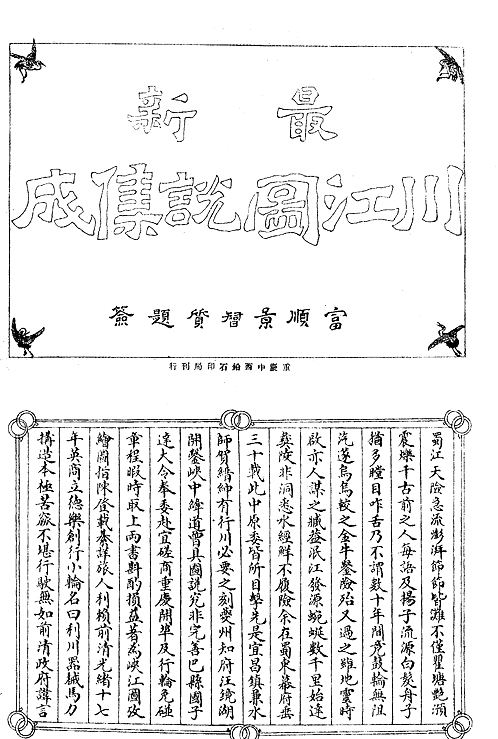 最新
川江圖說集成
富順景智質題簽
重慶中西鉛石印局刊行
蜀江天險急流澎湃節節皆灘不僅瞿塘艷澦
震爍千古前之人每語及揚子流源白髮舟子
猶多瞠目咋舌乃不謂數十年間竟鼓輪無沮
汽邃烏烏較之金牛鑿險殆又過之雖地靈時
啟亦人謀之臧蓋岷江發源蜿蜒數千里始達
夔陵非洞悉水經鮮不履險余在蜀東幕府垂
三十載此中原委皆所目擊先是宜昌鎮兼水
師賀縉紳有行川必要之刻夔州知府汪鏡湖
開鑿峽中縴道曾具圖說究非完善巴縣國子
達大令奉委赴宜磋商重慶開埠及行輪免碰
章程暇時取上兩書斟酌損益著為峽江圖攷
繪圖指陳登載綦詳旅人利賴前清光緒十七
年英商立德樂創行小輪名曰利川器械馬力
搆造本極苦窳不堪行駛無如前清政府諱言